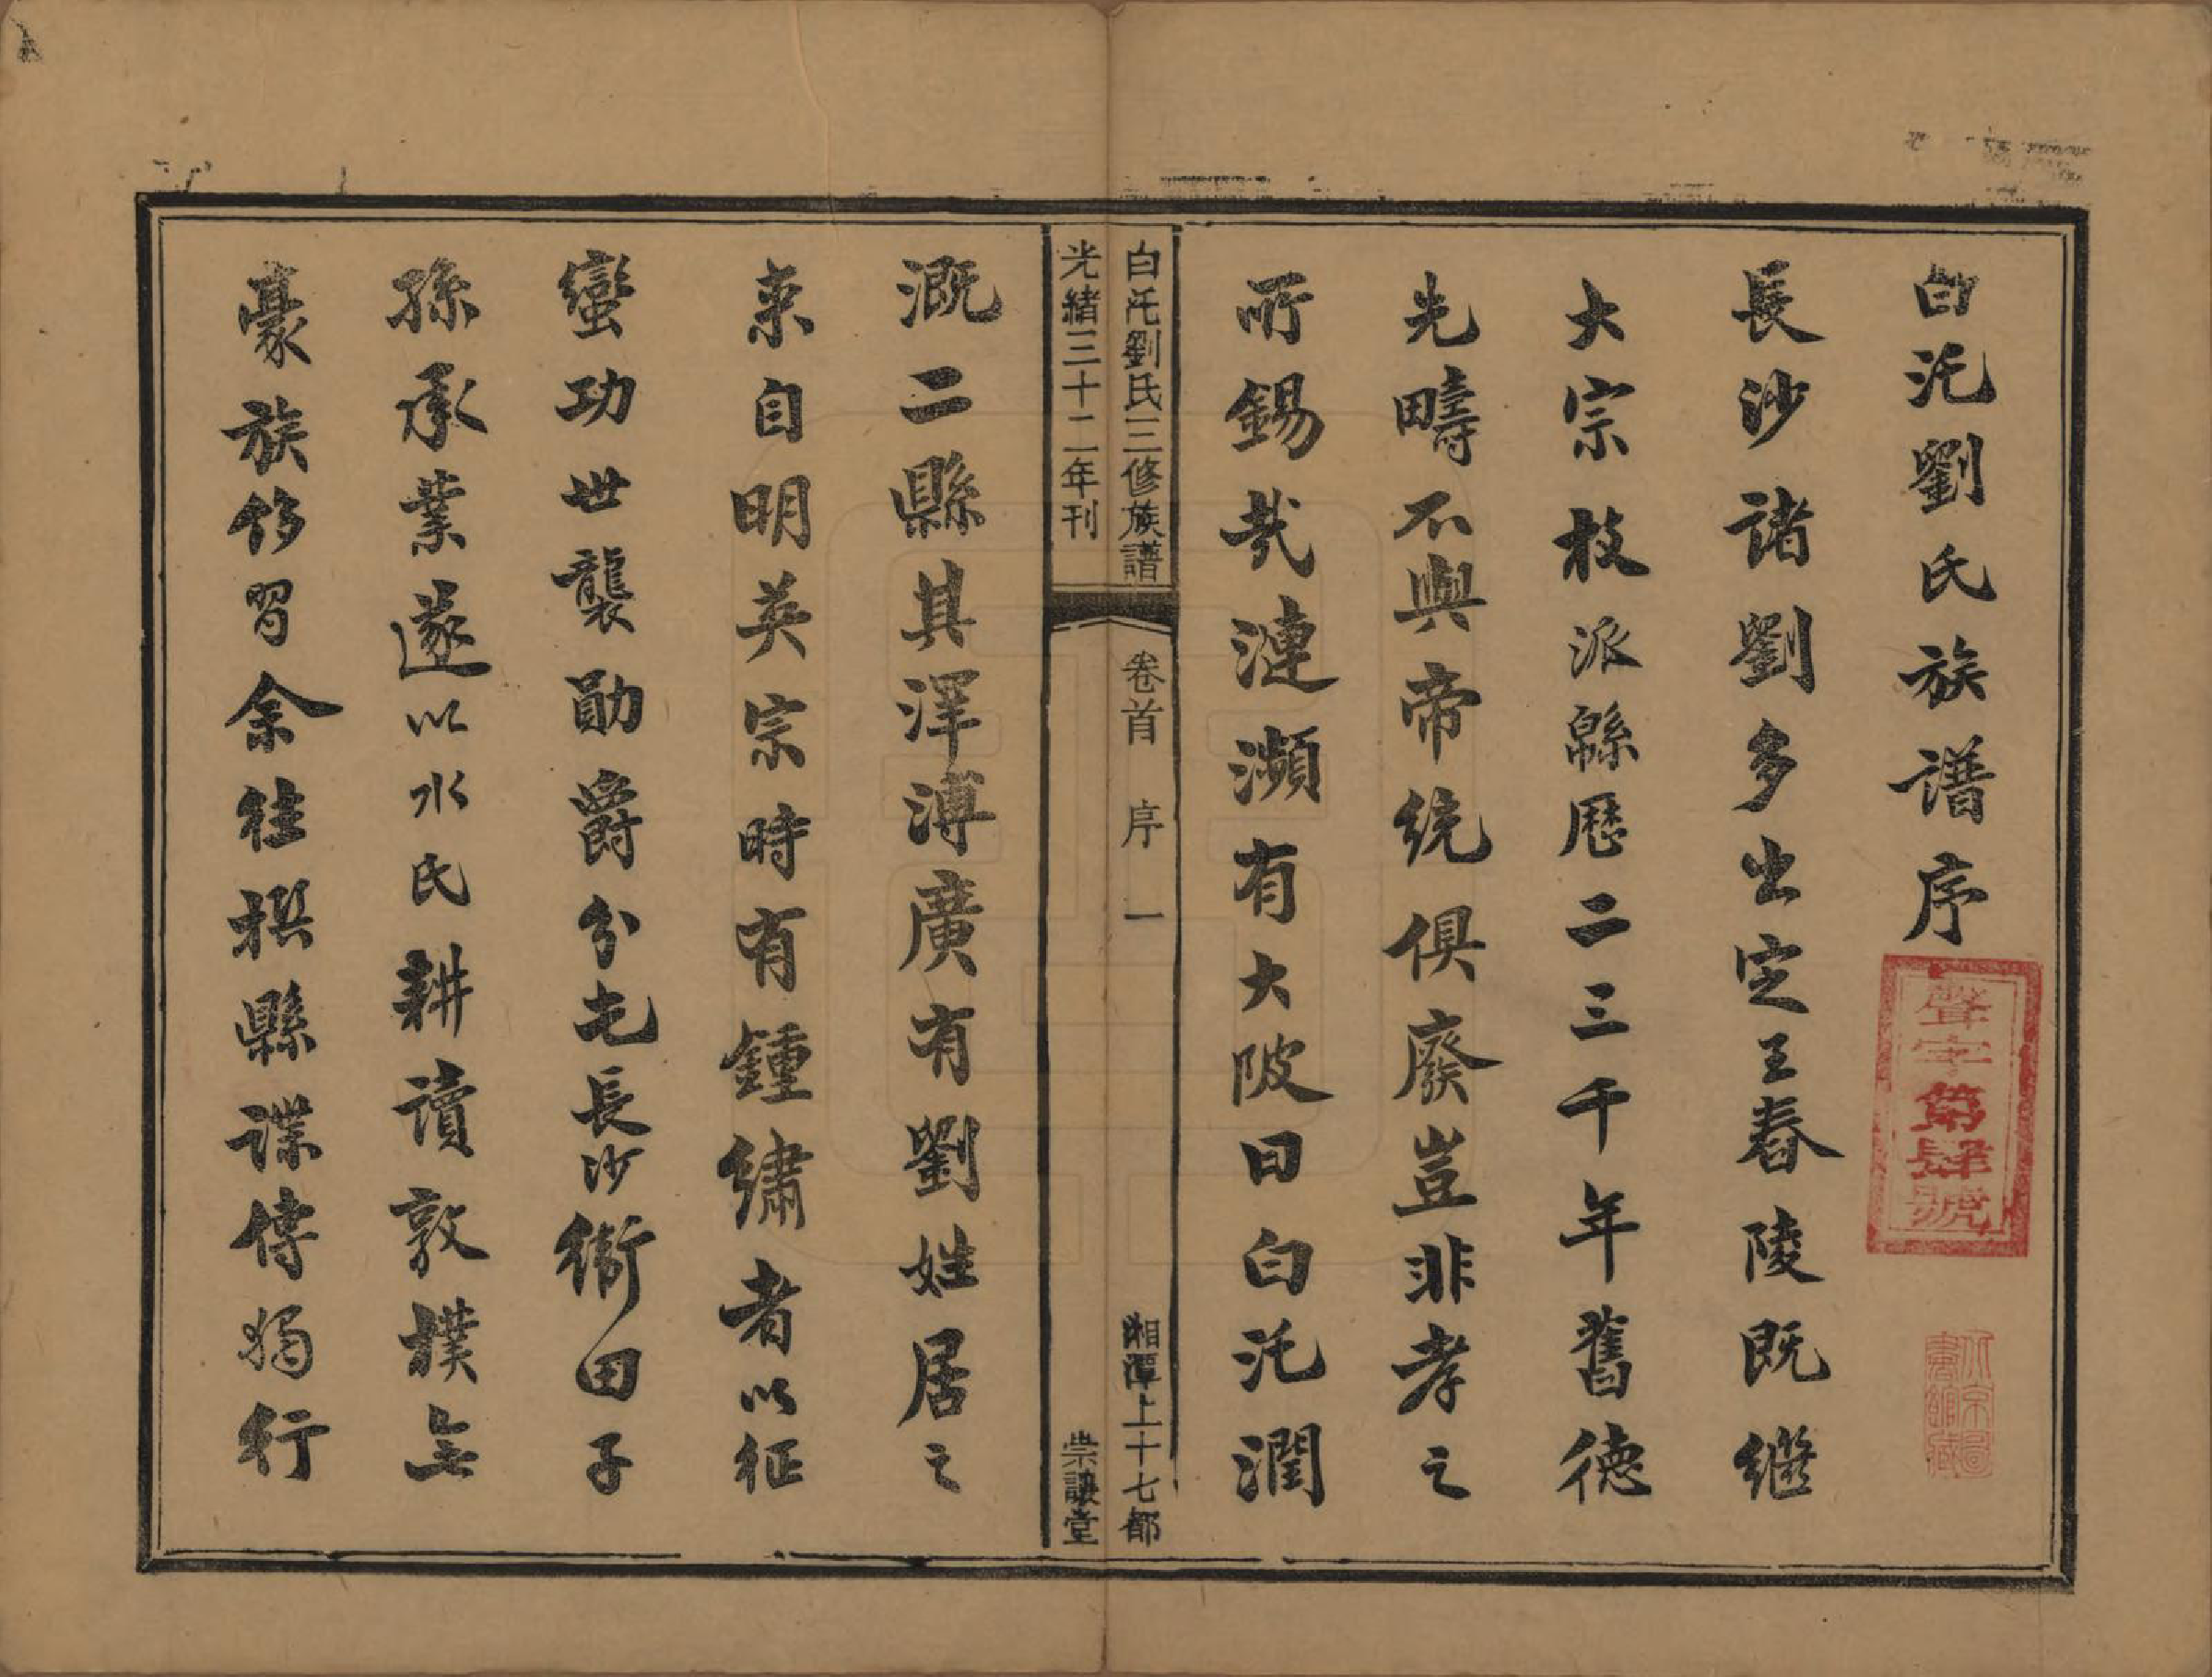 白汑劉氏族譜序
長沙諸劉多出定王舂陵既繼
大宗枝派緜歷二三千年舊德
先疇不與帝統俱廢豈非孝之
所錫哉漣瀕有大陂曰白汑潤
白汑劉氏三修族譜 卷首 序 一 湘潭上十七都
光緒三十二年刊 崇讓堂
溉二縣其澤溥廣有劉姓居之
来自明英宗時有鍾繡者以征
蠻功世襲勛爵分屯長沙衛田子
孫承業遂以水民耕讀敦樸無
豪族侈習余往撰縣諜傳獨行
聲字第肆號